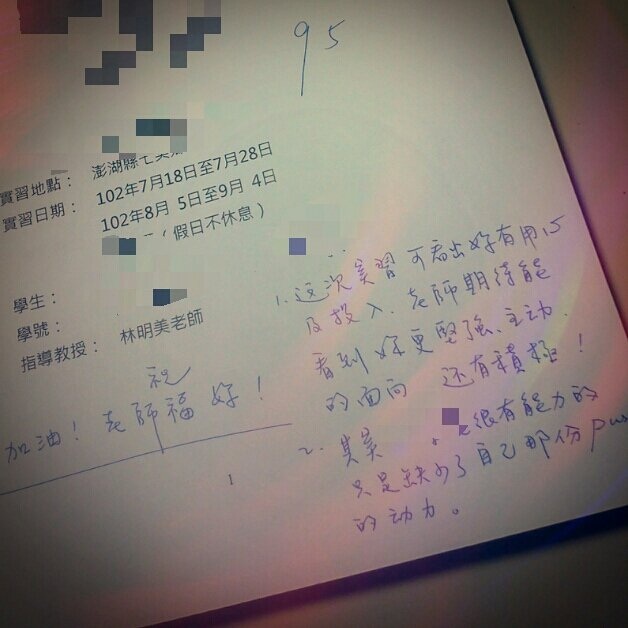 95
實習地點： 澎湖縣七美
實習日期： 102年7月18日至7月28日
102年8月 5日至9月 4日
（假日不休息）
學生：
學號：
指導教授： 林明美老師
1. 這次實習 可看出妳有用心
及投入. 老師期待能
看到 妳更堅強、主動、
的面向 還有積極！
祝
加油！ 老師福 好！
2. 其實 很有能力的
只是缺少了自己那份pus
的动力。
1